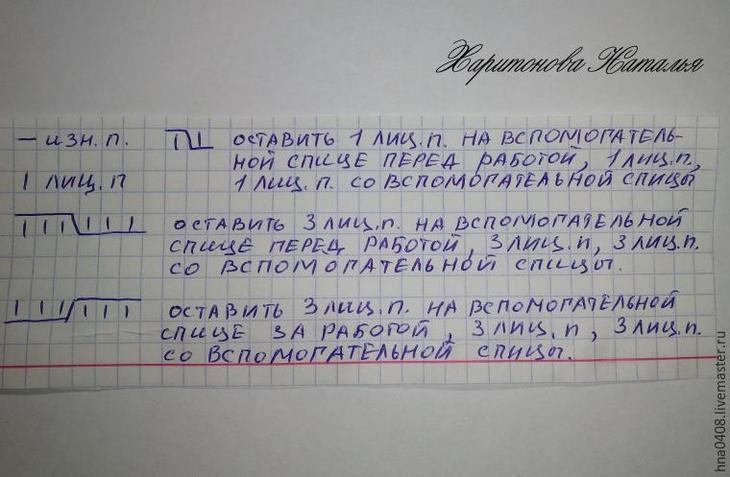 Харитонова Наталья
— изн. п.
I лиц. п
оставить 1 лиц. п. на вспомогатель-
ной спице перед работой, 1 лиц. п.,
1 лиц. п. со вспомогательной спицы
оставить 3 лиц. п. на вспомогательной
спице перед работой, 3 лиц. п, 3 лиц. п.
со вспомогательной спицы.
оставить 3 лиц. п. на вспомогательной
спице за работой, 3 лиц. п, 3 лиц. п.
со вспомогательной спицы.
hna0408.livemaster.ru